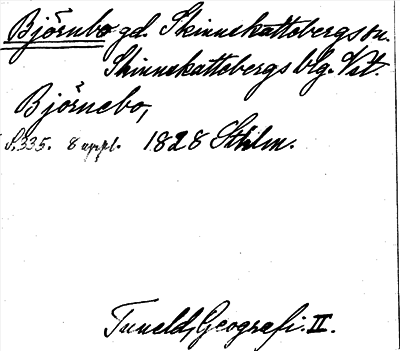 Björnbo gd. Skinnskattebergs sn.
Skinnskattebergs blg. Vstm.
Björnebo,
S.335. 8 uppl. 1828 Sthlm.
Tuneld, Geografi. II.